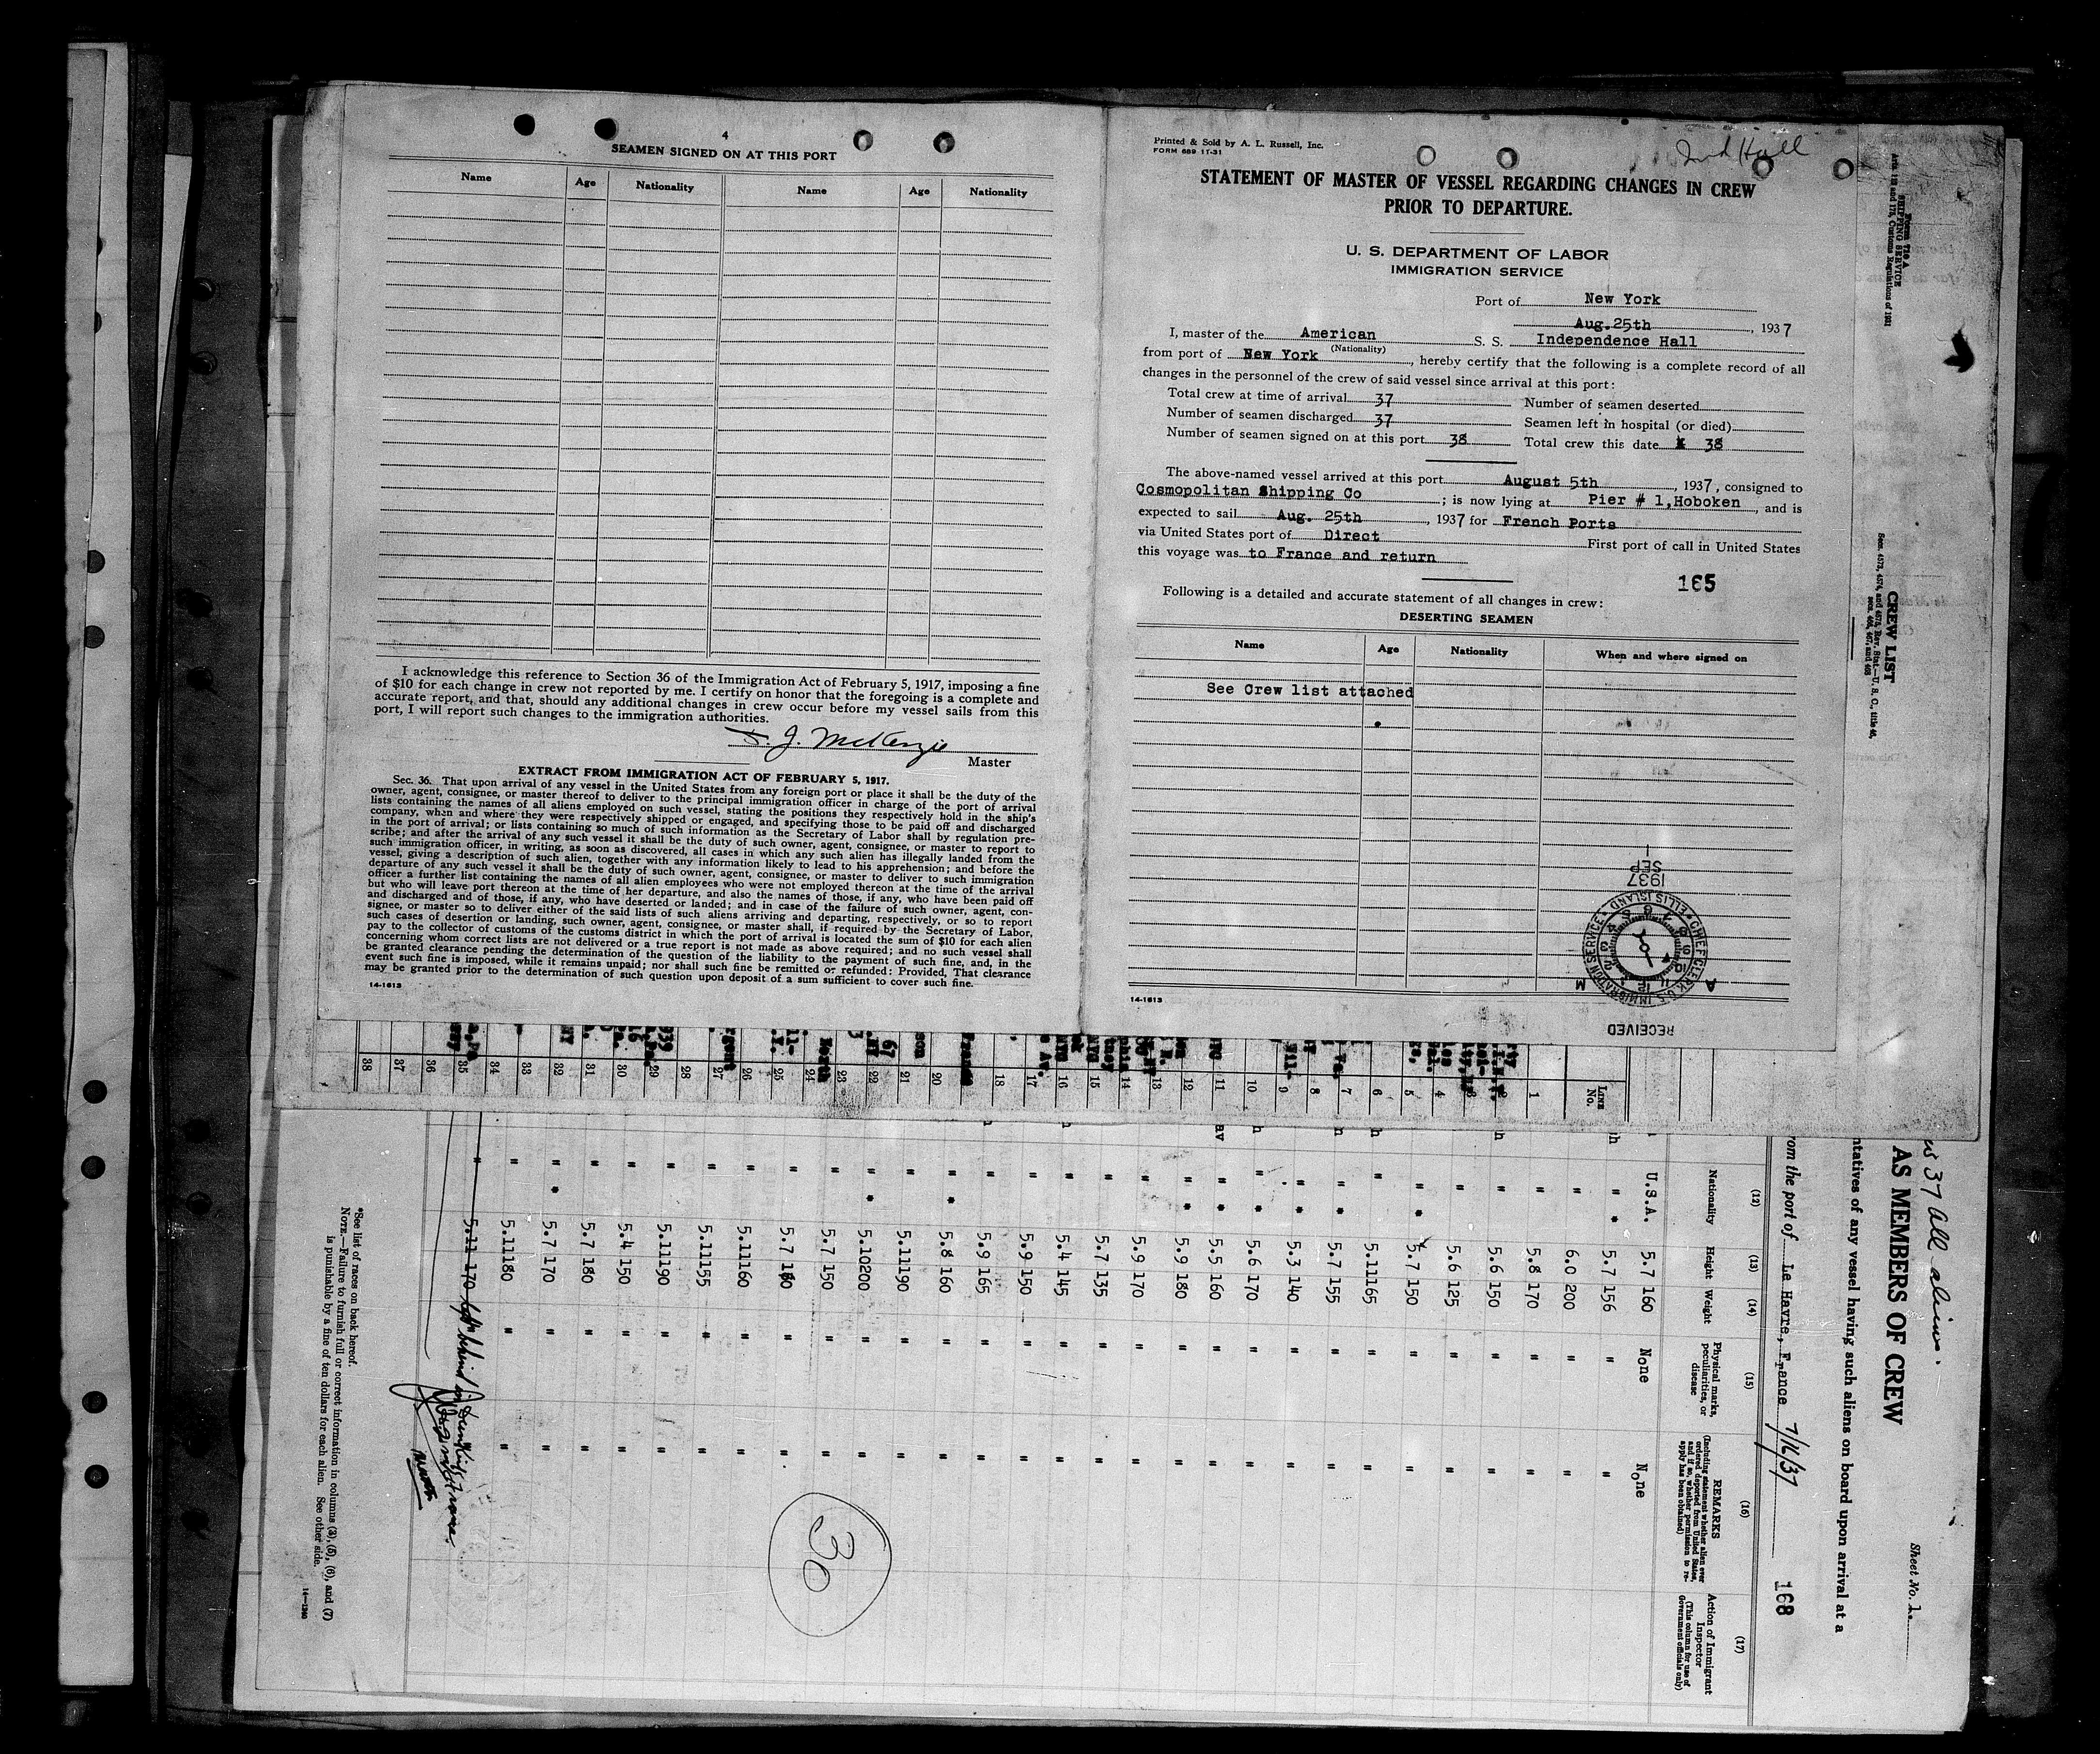 4
SEAMEN SIGNED ON AT THIS PORT
Name Age Nationality Name Age Nationality
I acknowledge this reference to Section 36 of the Immigration Act of February 5, 1917, imposing a fine
of $10 for each change in crew not reported by me. I certify on honor that the foregoing is a complete and
accurate report, and that, should any additional changes in crew occur before my vessel sails from this
port, I will report such changes to the immigration authorities.
J. McKenzie
Master
EXTRACT FROM IMMIGRATION ACT OF FEBRUARY 5, 1917.
Sec. 36. That upon arrival of any vessel in the United States from any foreign port or place it shall be the duty of the
owner, agent, consignee, or master thereof to deliver to the principal immigration officer in charge of the port of arrival
lists containing the names of all aliens employed on such vessel, stating the positions they respectively hold in the ship's
company, when and where they were respectively shipped or engaged, and specifying those to be paid off and discharged
in the port of arrival; or lists containing so much of such information as the Secretary of Labor shall by regulation pre-
scribe; and after the arrival of any such vessel it shall be the duty of such owner, agent, consignee, or master to report to
such immigration officer, in writing, as soon as discovered, all cases in which any such alien has illegally landed from the
vessel, giving a description of such alien, together with any information likely to lead to his apprehension; and before the
departure of any such vessel it shall be the duty of such owner, agent, consignee, or master to deliver to such immigration
officer a further list containing the names of all alien employees who were not employed thereon at the time of the arrival
but who will leave port thereon at the time of her departure, and also the names of those, if any, who have been paid off
and discharged and of those, if any, who have deserted or landed; and in case of the failure of such owner, agent, con-
signee, or master so to deliver either of the said lists of such aliens arriving and departing, respectively, or so to report
such cases of desertion or landing, such owner, agent, consignee, or master shall, if required by the Secretary of Labor,
pay to the collector of customs of the customs district in which the port of arrival is located the sum of $10 for each alien
concerning whom correct lists are not delivered or a true report is not made as above required; and no such vessel shall
be granted clearance pending the determination of the question of the liability to the payment of such fine, and, in the
event such fine is imposed, while it remains unpaid; nor shall such fine be remitted or refunded: Provided, That clearance
may be granted prior to the determination of such question upon deposit of a sum sufficient to cover such fine.
14-1613
Printed & Sold by A. L. Russell, Inc.
FORM 689 11-31
Ind Hall
STATEMENT OF MASTER OF VESSEL REGARDING CHANGES IN CREW
PRIOR TO DEPARTURE.
U. S. DEPARTMENT OF LABOR
IMMIGRATION SERVICE
Port of New York
Aug.25th, 1937
I, master of the American S. S. Independence Hall
(Nationality)
from port of New York, hereby certify that the following is a complete record of all
changes in the personnel of the crew of said vessel since arrival at this port:
Total crew at time of arrival 37 Number of seamen deserted
Number of seamen discharged 37 Seamen left in hospital (or died)
Number of seamen signed on at this port 38 Total crew this date 38
The above-named vessel arrived at this port August 5th, 1937, consigned to
Cosmopolitan Shipping Co; is now lying at Pier # 1,Hoboken, and is
expected to sail Aug. 25th, 1937 for French Ports
via United States port of Direct First port of call in United States
this voyage was to France and return
165
Following is a detailed and accurate statement of all changes in crew:
DESERTING SEAMEN
Name Age Nationality When and where signed on
See Crew list attached
14-1613
RECEIVED
CHIEF CLERK U.S. IMMIGRATION SERVICE
ELLIS ISLAND
1937
SEP
A M
Form 710 A
SHIPPING SERVICE
Arts. 122 and 175, Customs Regulations of 1931
CREW LIST
LINE No.
1 2 3 4 5 6 7 8 9 10 11 12 13 14 15 16 17 18 20 21 22 23 24 25 26 27 28 29 30 31 32 33 34 35 36 37 38
37 All aliens.
Sheet No. 1.
AS MEMBERS OF CREW
ntatives of any vessel having such aliens on board upon arrival at a
rom the port of Le Havre, France 7/16/37
168
(12) (13) (14) (15) (16) (17)
Nationality
Height
Weight
Physical marks, peculiarities, or disease
REMARKS
(Including statement whether alien ever ordered deported from United States, and if so, whether permission to re-apply has been obtained)
Action of Immigrant Inspector
(This column for use of Government officials only)
U.S.A. 5.7 160 None None
" * 5.7 156 " "
" 6.0 200 " "
" 5.8 170 " "
" 5.6 150 " "
" 5.6 125 " "
" * 5.7 150 " "
" 5.11165 " "
" * 5.7 155 " "
" * 5.3 140 " "
" * 5.6 170 " "
" * 5.5 160 " "
" * 5.9 180 " "
" 5.9 170 " "
" 5.7 135 " "
" 5.4 145 " "
" 5.9 150 " "
" 5.9 165 " "
" * 5.8 160 " "
" 5.11190 " "
" * 5.10200 " "
" 5.7 150 " "
" 5.7 180 " "
" 5.11160 " "
" 5.11155 " "
" 5.11190 " "
" 5.4 150 " "
" 5.7 180 " "
" * 5.7 170 " "
" 5.11180 " "
" 5.11 170 left behind in Dunkirk France.
Master
30
*See list of races on back hereof.
NOTE.—Failure to furnish full or correct information in columns (3), (5), (6), and (7)
is punishable by a fine of ten dollars for each alien. See other side.
14—1240